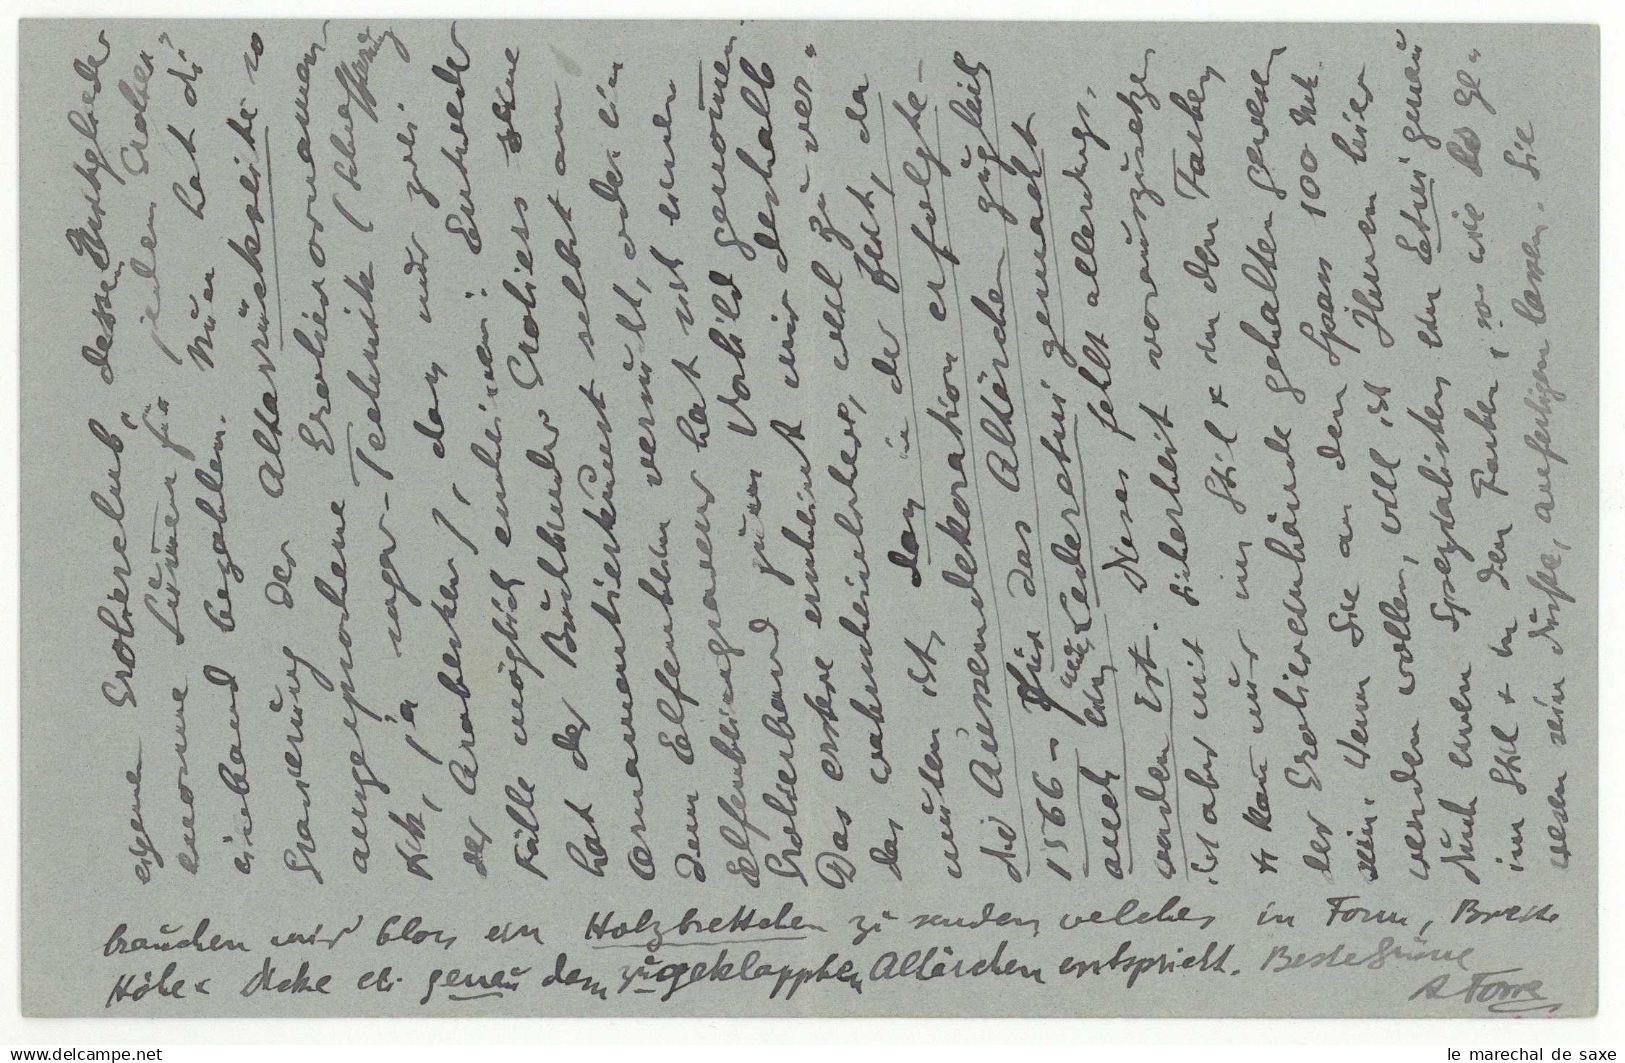 eigenen Grolierclub, dessen Mitglieder
enorme Summen für jeden Grolier-
einband bezahlen. Nun hat die
Gravierung der Altarrückseite so
ausgesprochene Grolierornamen-
tik, ja sogar Technik (schraffierung
der Arabesken), dass nur zwei
Fälle möglich erscheinen: Entweder
hat der Buchbinder Groliers seine
Ornamentierkunst selbst an
dem Elfenbein versucht, oder ein
Elfenbeingraveur hat sich einen
Grolierband zum Vorbild genommen
Das erstere erscheint mir deshalb
das wahrscheinlichere, weil zu ver-
muten ist, dass in der Zeit, da
die Aussendekoration erfolgte -
1566 - für das Altärchen zugleich
auch ein neues Lederetui gemacht
worden ist. Dieses fehlt allerdings,
ist aber mit Sicherheit vorauszusetzen
& kann nur im Stil & in den Farben
der Koliereinbände gehalten gewesen
sein. Wenn Sie an den Spass 100 Mk
wenden wollen, will ich Ihnen hier
durch einen Spezialisten ein Etui genau
im Stil & in den Farben, so wie es ge-
wesen sein dürfte, anfertigen lassen. Sie
brauchen mir blos ein Holzbrettchen zu senden, welches in Form, Breite
Höhe & Dicke etc. genau dem zugeklappten Altärchen entspricht. Beste Grüsse
A Forrer
le marechal de saxe
www.delcampe.com